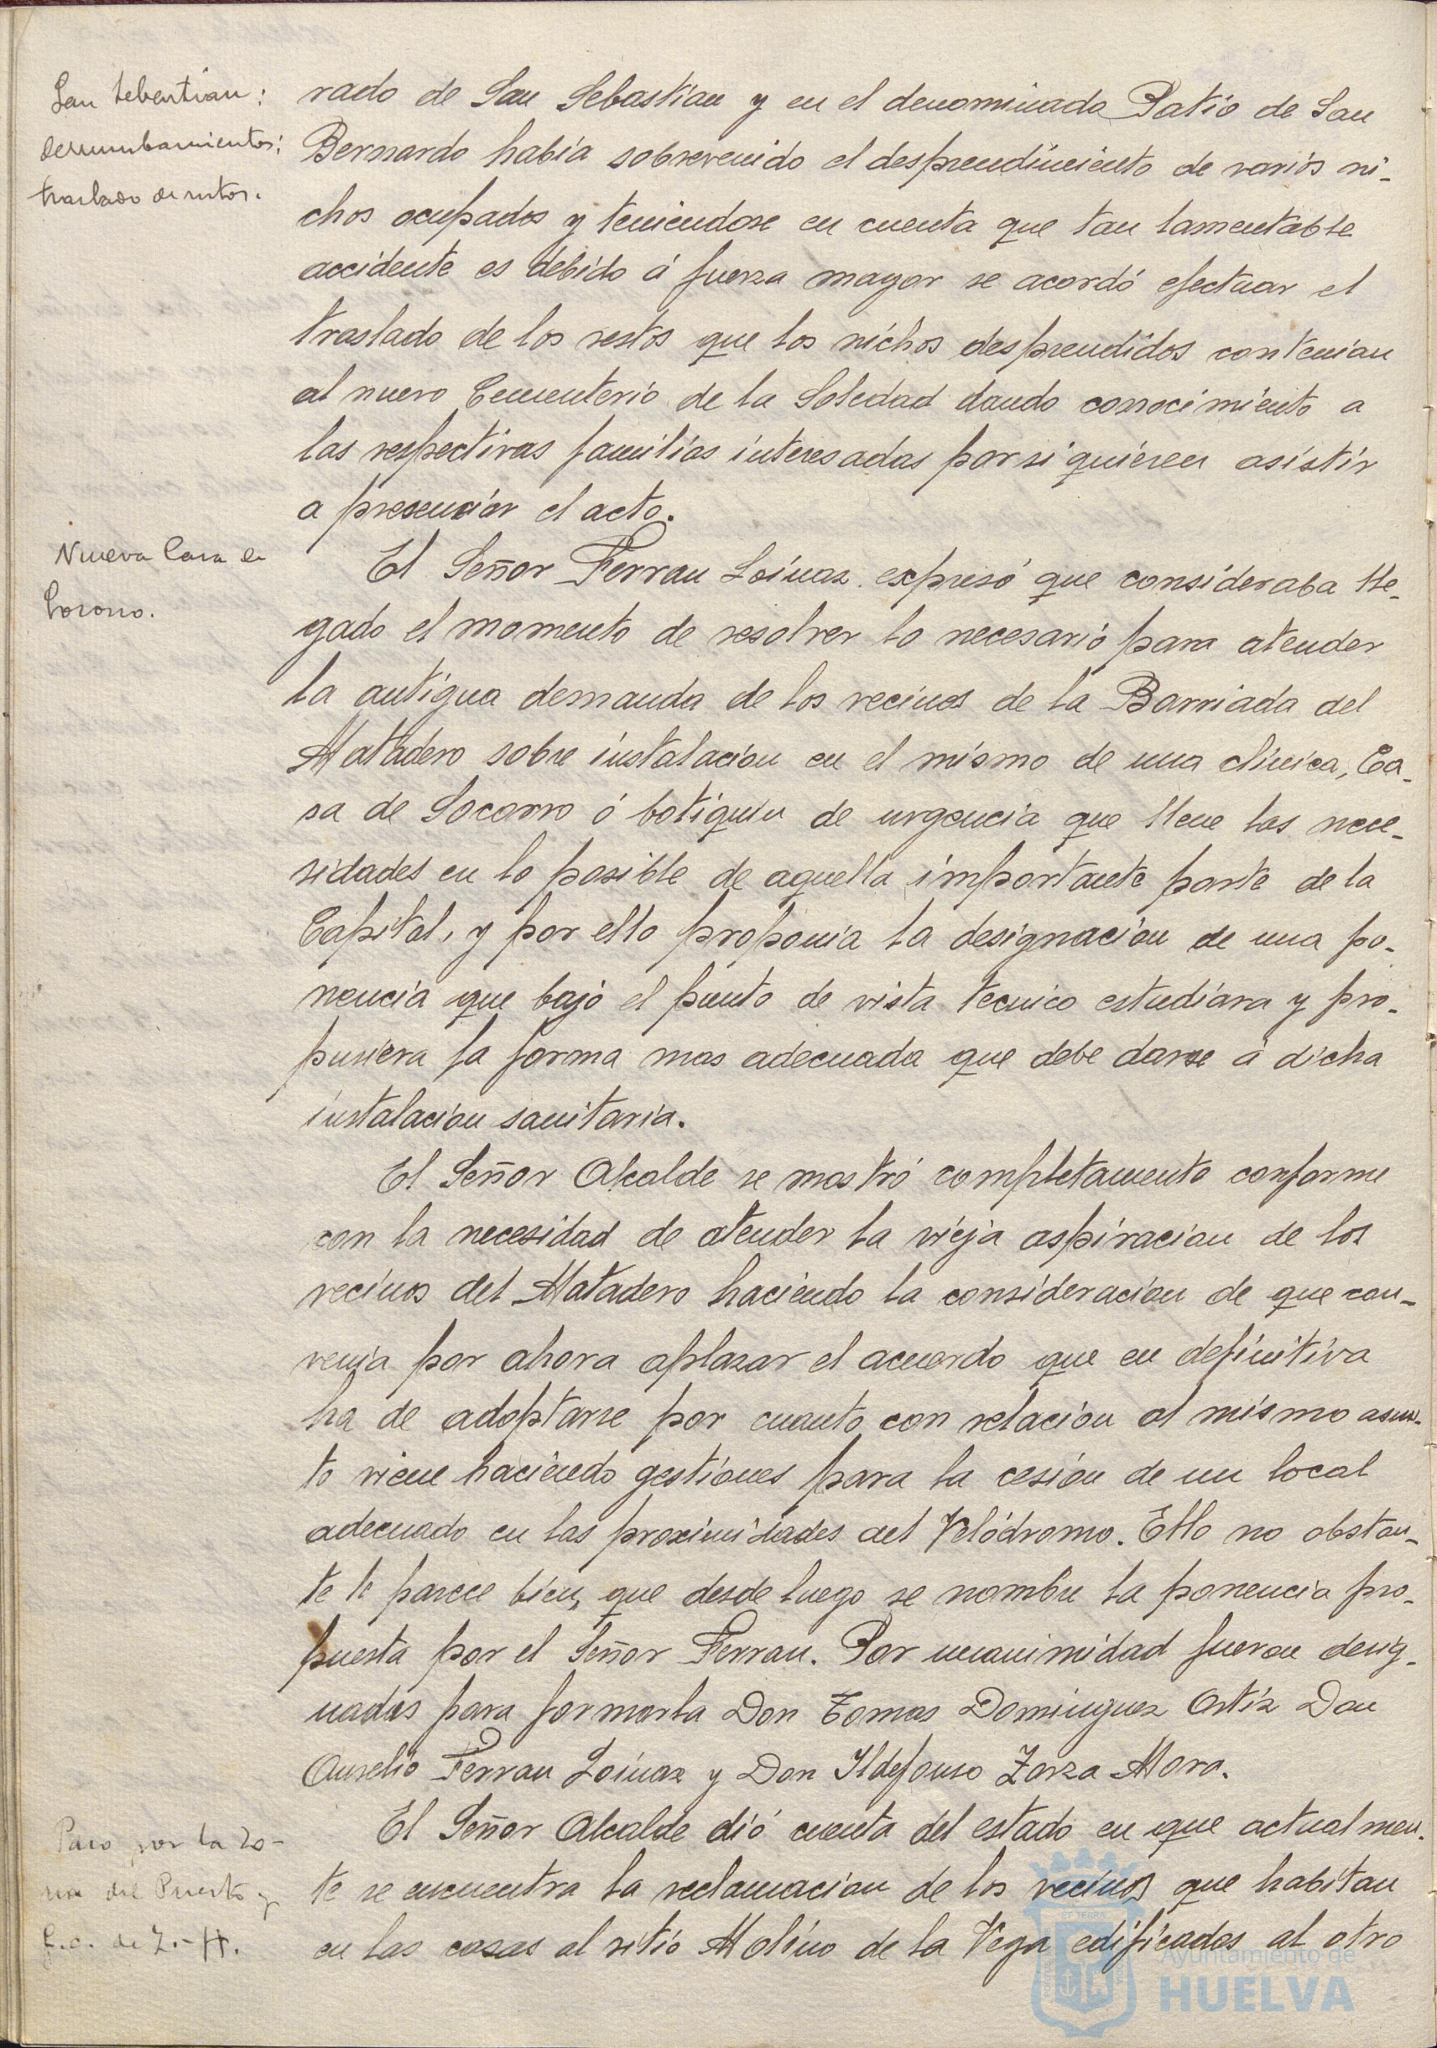 San Sebastian:
derrumbamientos:
traslado de restos.
rado de San Sebastian y en el denominado Patio de San
Bernardo habia sobrevenido el desprendimiento de varios ni-
chos ocupados y teniendose en cuenta que tan lamentable
accidente es debido á fuerza mayor se acordó efectuar el
traslado de los restos que los nichos desprendidos contenian
al nuevo Cementerio de la Soledad dando conocimiento a
las respectivas familias interesadas por si quieren asistir
a presenciar el acto.
Nueva Casa de
Socorro.
El Señor Ferran Loinaz expresó que consideraba lle-
gado el momento de resolver lo necesario para atender
la antigua demanda de los vecinos de la Barriada del
Matadero sobre instalacion en el mismo de una clinica, Ca-
sa de Socorro ó botiquin de urgencia que llene las nece-
sidades en lo posible de aquella importante parte de la
Capital, y por ello proponia la designacion de una po-
nencia que bajo el punto de vista tecnico estudiara y pro-
pusiera la forma mas adecuada que debe darse á dicha
instalacion sanitaria.
El Señor Alcalde se mostró completamente conforme
con la necesidad de atender la vieja aspiracion de los
vecinos del Matadero haciendo la consideracion de que con-
venia por ahora aplazar el acuerdo que en definitiva
ha de adoptarse por cuanto con relacion al mismo asun-
to viene haciendo gestiones para la cesion de un local
adecuado en las proximidades del Velódromo. Ello no obstan-
te le parece bien, que desde luego se nombre la ponencia pro-
puesta por el Señor Ferran. Por unanimidad fueron desig-
nados para formarla Don Tomas Dominguez Ortiz Don
Aurelio Ferran Loinaz y Don Ildefonso Zarza Mora.
Paso por la Zo-
na del Puerto y
f.c. de Z.-H.
El Señor Alcalde dió cuenta del estado en que actualmen-
te se encuentra la reclamacion de los vecinos que habitan
en las casas al sitio Molino de la Vega edificados al otro
Ayuntamiento de
HUELVA